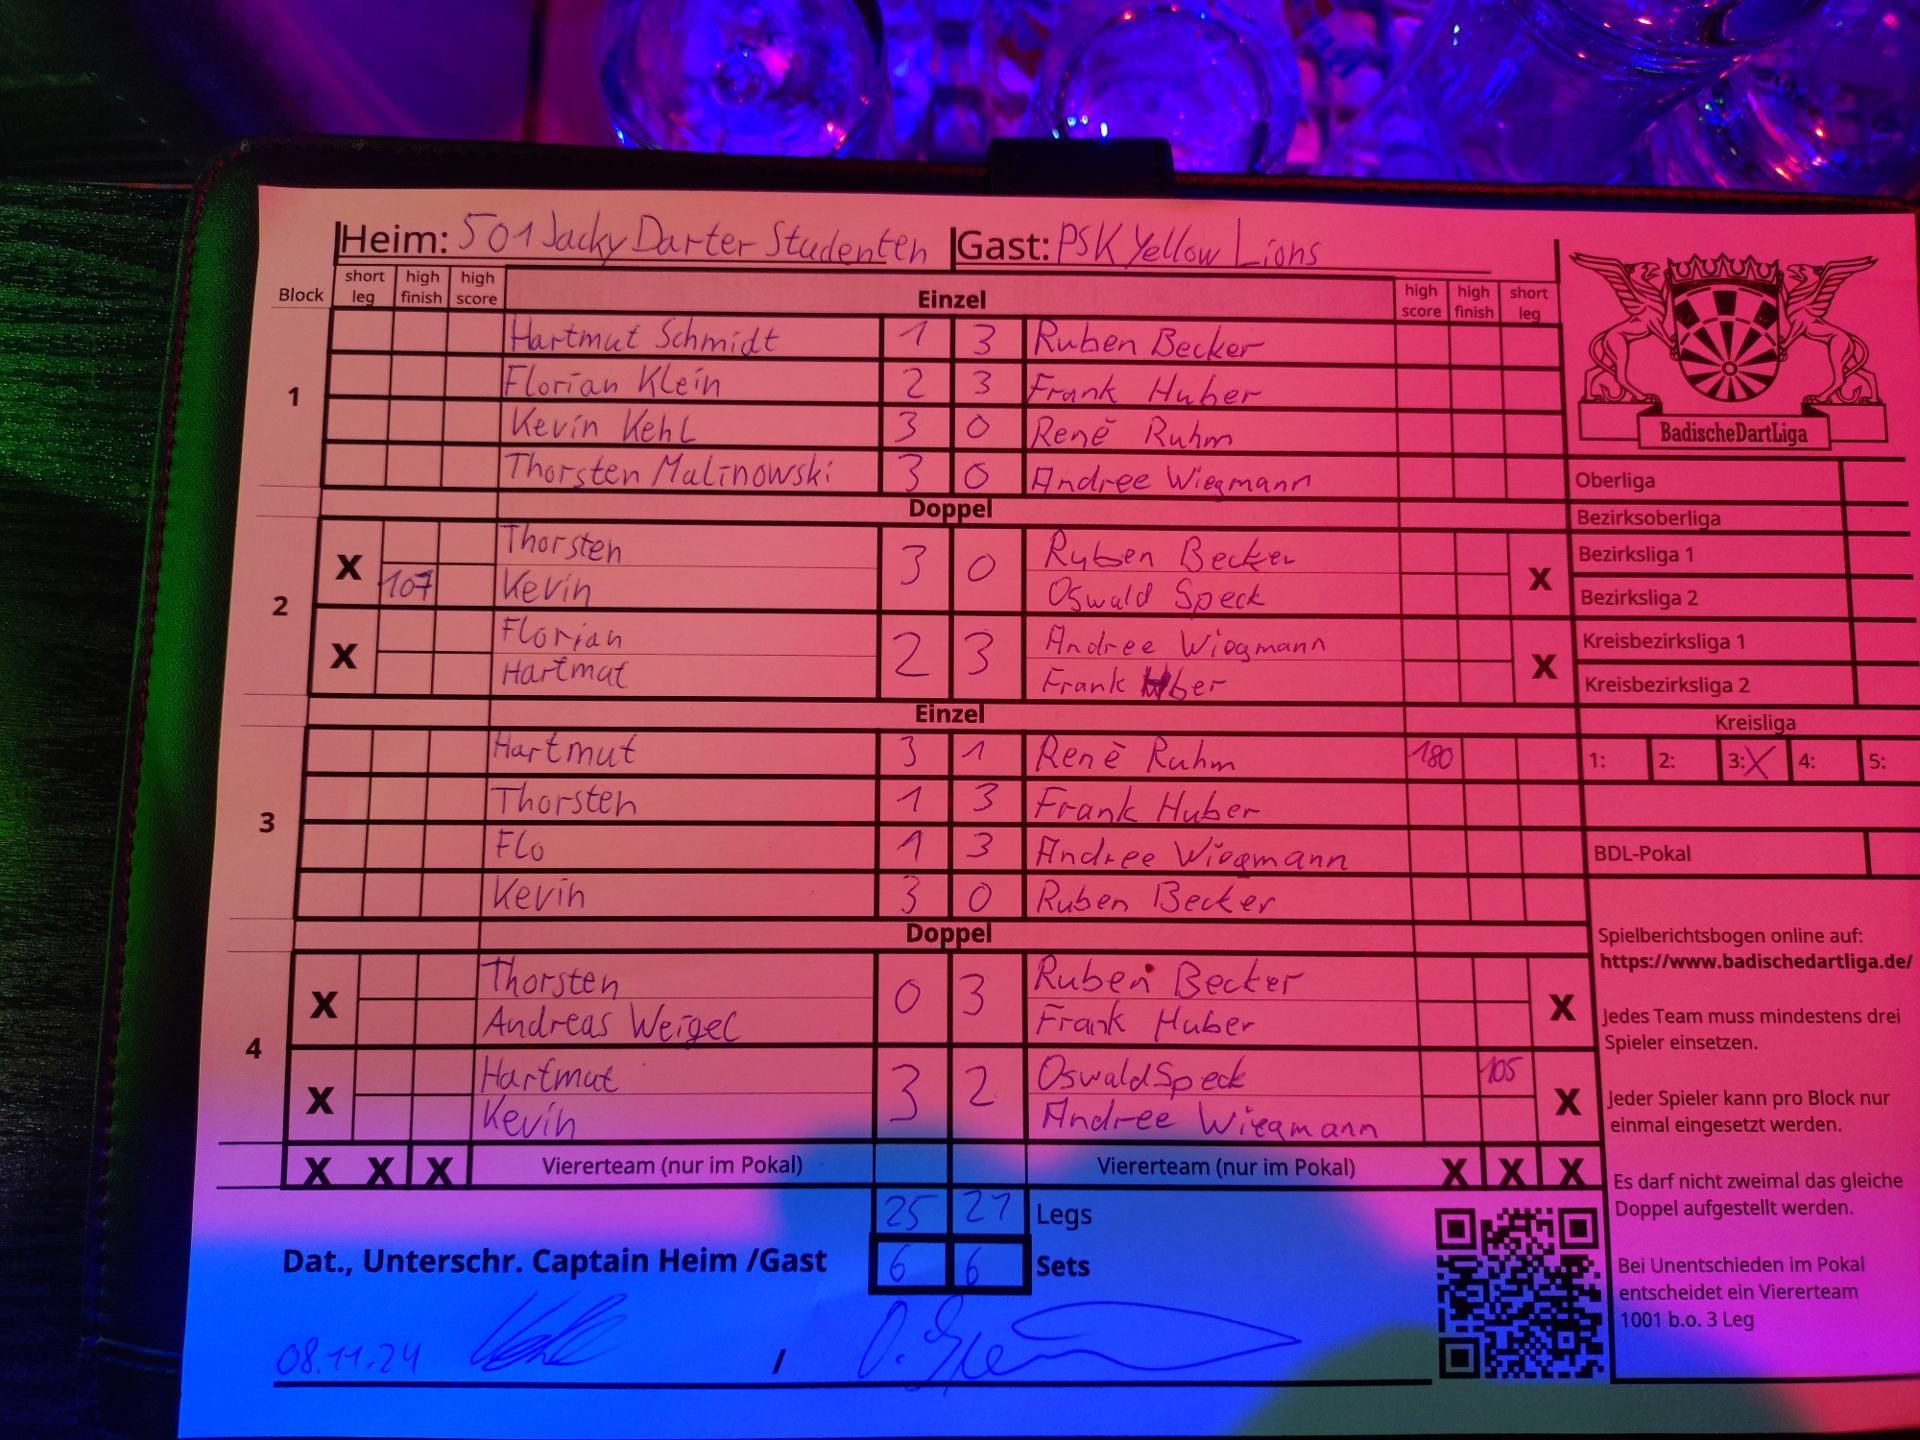 Heim: 501 Jacky Darter Studenten Gast: PSK Yellow Lions
Block short leg high finish high score Einzel high score high finish short leg
1
Hartmut Schmidt 1 3 Ruben Becker
Florian Klein 2 3 Frank Huber
Kevin Kehl 3 0 Renè Ruhm
Thorsten Malinowski 3 0 Andree Wiegmann
Doppel
2
X Thorsten 3 0 Ruben Becker X
107 Kevin Oswald Speck
X Florian 2 3 Andree Wiegmann X
Hartmut Frank Huber
Einzel
3
Hartmut 3 1 Renè Ruhm 180
Thorsten 1 3 Frank Huber
Flo 1 3 Andree Wiegmann
Kevin 3 0 Ruben Becker
Doppel
4
X Thorsten 0 3 Ruben Becker X
Andreas Weigel Frank Huber
X Hartmut 3 2 Oswald Speck 105 X
Kevin Andree Wiegmann
X X X Viererteam (nur im Pokal) Viererteam (nur im Pokal) X X X
25 21 Legs
6 6 Sets
Dat., Unterschr. Captain Heim /Gast
08.11.24 /
BadischeDartLiga
Oberliga
Bezirksoberliga
Bezirksliga 1
Bezirksliga 2
Kreisbezirksliga 1
Kreisbezirksliga 2
Kreisliga
1: 2: 3: X 4: 5:
BDL-Pokal
Spielberichtsbogen online auf:
https://www.badischedartliga.de/
Jedes Team muss mindestens drei
Spieler einsetzen.
Jeder Spieler kann pro Block nur
einmal eingesetzt werden.
Es darf nicht zweimal das gleiche
Doppel aufgestellt werden.
Bei Unentschieden im Pokal
entscheidet ein Viererteam
1001 b.o. 3 Leg